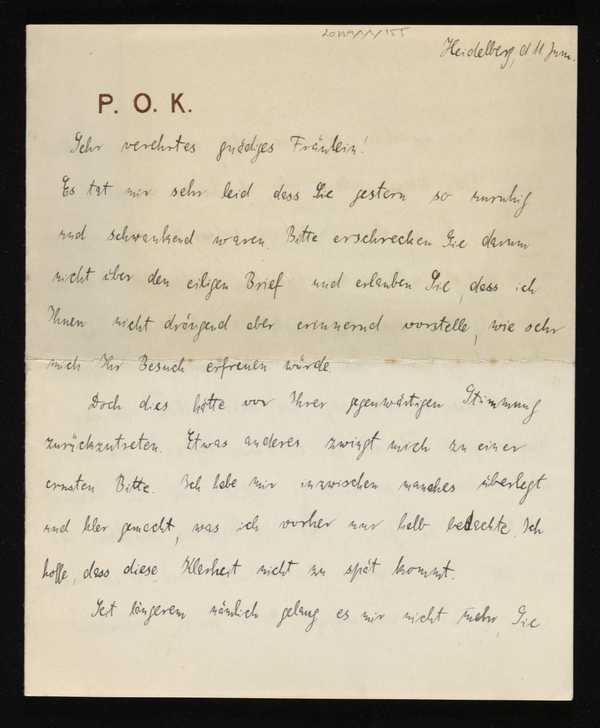 Heidelberg, d 11 Juni.
P. O. K.
Sehr verehrtes gnädiges Fräulein!
Es tat mir sehr leid dass Sie gestern so unruhig
und schwankend waren. Bitte erschrecken Sie darum
nicht über den eiligen Brief und erlauben Sie, dass ich
Ihnen nicht drängend aber erinnernd vorstelle, wie sehr
mich Ihr Besuch erfreuen würde
Doch dies hätte vor Ihrer gegenwärtigen Stimmung
zurückzutreten. Etwas anderes zwingt mich zu einer
ernsten Bitte. Ich habe mir inzwischen manches überlegt
und klar gemacht, was ich vorher nur halb bedachte. Ich
hoffe, dass diese Klarheit nicht zu spät kommt.
Seit längerem nämlich gelang es mir nicht mehr, Sie